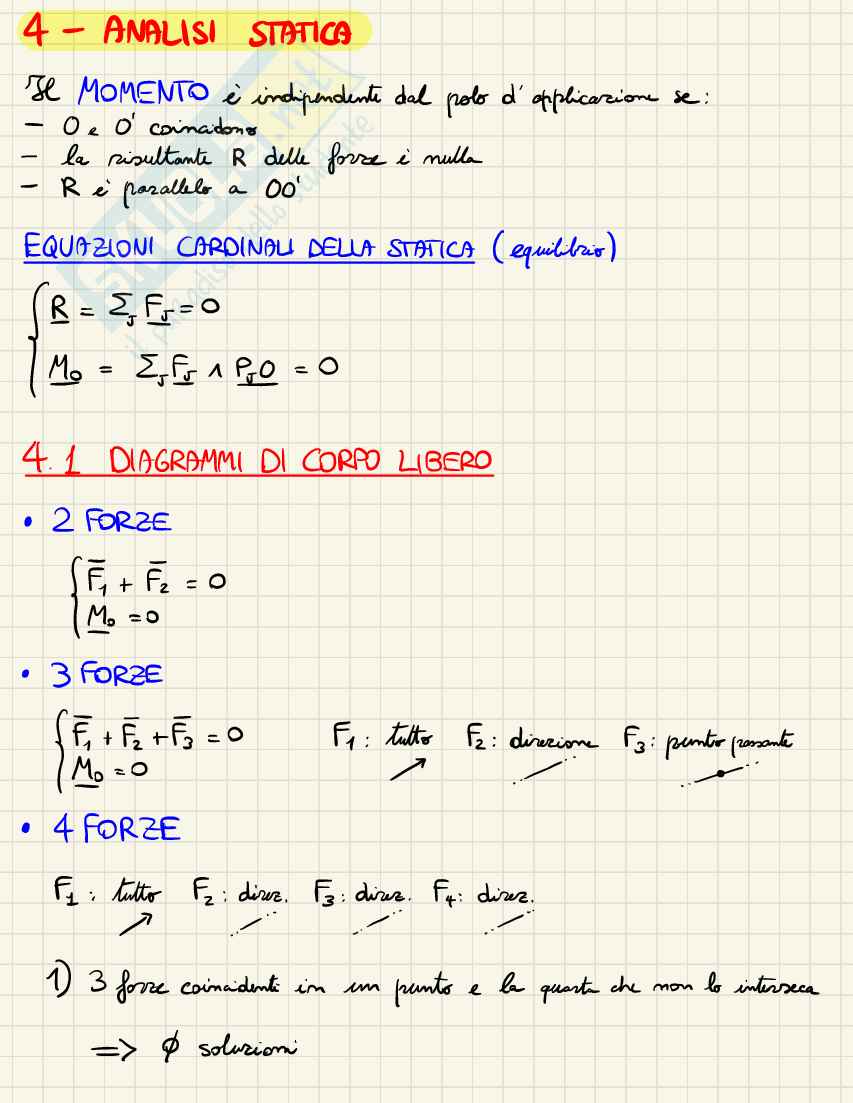 4 - ANALISI STATICA
Il MOMENTO è indipendente dal polo d'applicazione se:
- O e O' coincidono
- la risultante R delle forze è nulla
- R è parallelo a OO'
EQUAZIONI CARDINALI DELLA STATICA (equilibrio)
R = Σ_J F_J = 0
M_O = Σ_J F_J ∧ P_JO = 0
4.1 DIAGRAMMI DI CORPO LIBERO
• 2 FORZE
F̅₁ + F̅₂ = 0
M_O = 0
• 3 FORZE
F̅₁ + F̅₂ + F̅₃ = 0 F₁: tutto F₂: direzione F₃: punto passante
M_O = 0
• 4 FORZE
F₁: tutto F₂: direz. F₃: direz. F₄: direz.
1) 3 forze coincidenti in un punto e la quarta che non lo interseca
=> ∅ soluzioni
SKUOLA.net
il paradiso dello studente